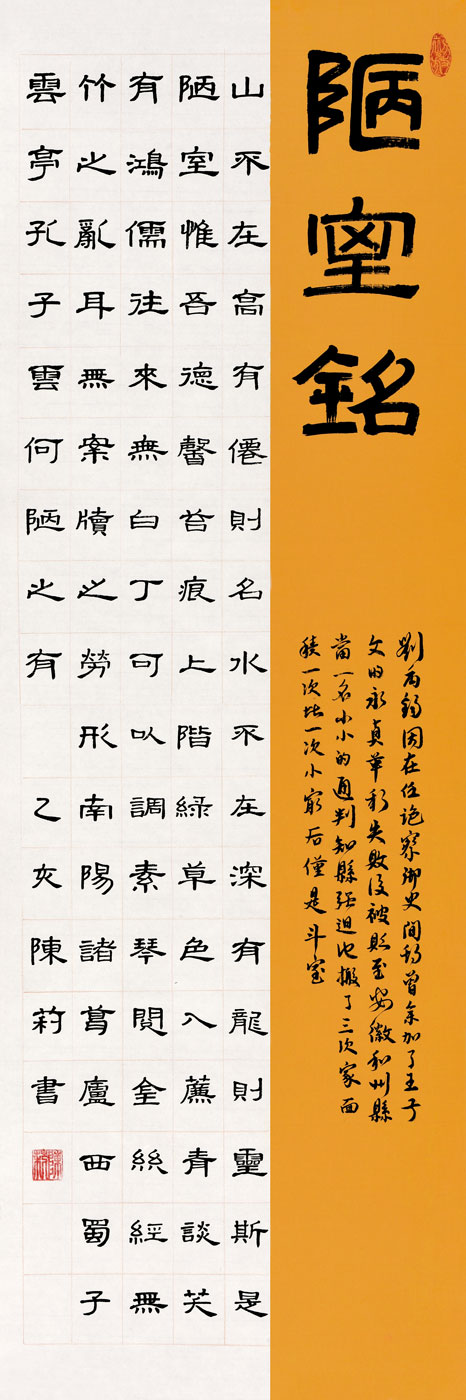 陋室銘
劉禹錫因在任察御史間期曾參加了王
文的永貞革新失敗後被貶至安徽和州縣
當一名小小的通判知縣強迫他搬了三次家面
積一次比一次小窮后僅是斗室
山不在高有僊則名水不在深有龍則靈斯是
陋室惟吾德馨苔痕上階綠草色入簾青談笑
有鴻儒往來無白丁可以調素琴閱金絲經無
竹之亂耳無案牘之勞形南陽諸葛廬西蜀子
雲亭孔子雲何陋之有
乙亥陳莉書